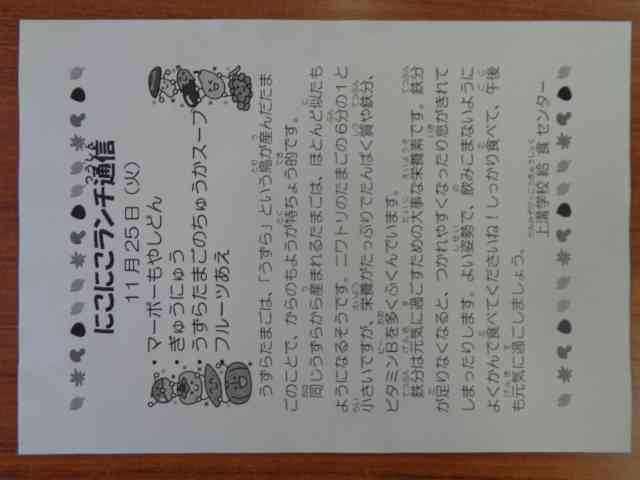 にこにこランチ通信
11月25日(火)
・マーボーもやしどん
・ぎゅうにゅう
・うずらたまごのちゅうかスープ
・フルーツあえ
うずらたまごは、「うずら」という鳥が産んだたま
ごのことで、からのもようが特ちょう的です。
同じうずらから産まれるたまごは、ほとんど似たも
ようになるそうです。ニワトリのたまごの6分の1と
小さいですが、栄養がたっぷりでたんぱく質や鉄分、
ビタミンBを多くふくんでいます。
鉄分は元気に過ごすための大事な栄養素です。鉄分
が足りなくなると、つかれやすくなったり息がきれて
しまったりします。よい姿勢で、飲みこまないように
よくかんで食べてくださいね!しっかり食べて、午後
も元気に過ごしましょう。
上溝学校給食センター